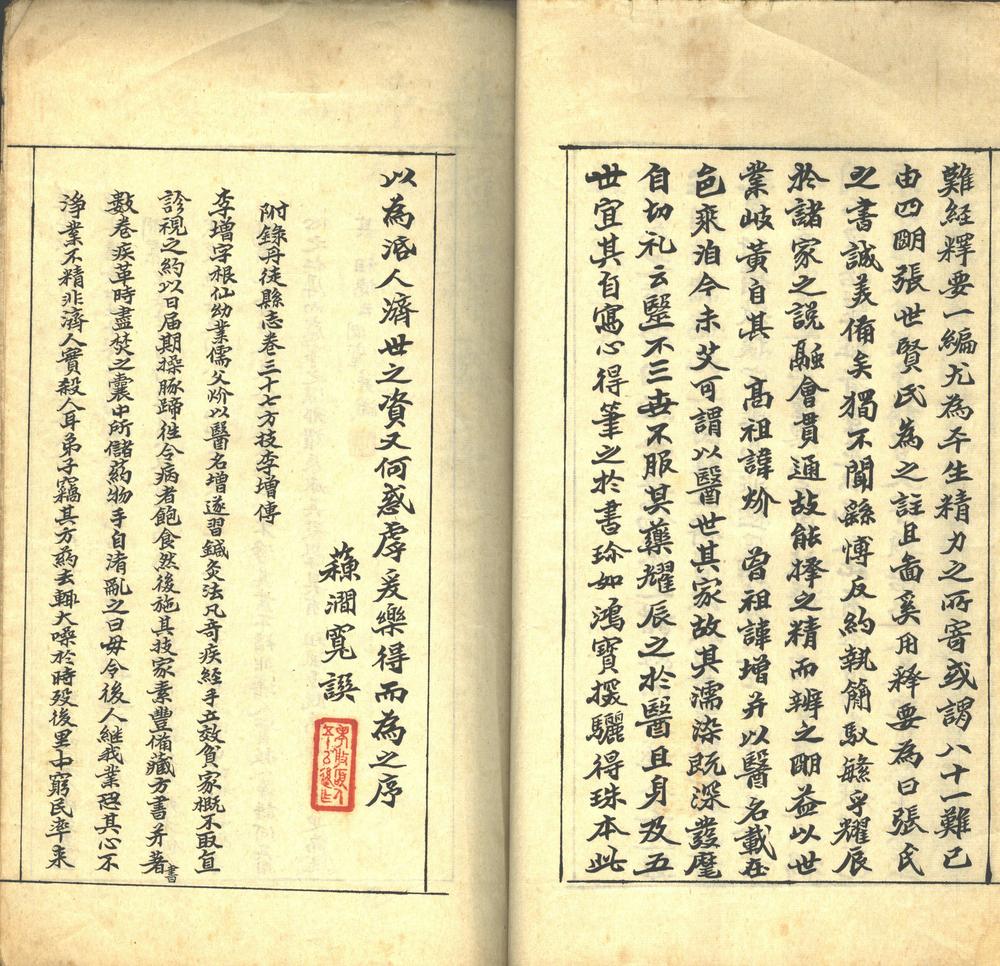 難經釋要一編尤為平生精力之所寄或謂八十一難已
由四明張世賢氏為之註且圖奚用釋要為曰張氏
之書誠美備矣獨不聞繇博反約執簡馭繁乎耀辰
於諸家之說融會貫通故能擇之精而辨之明益以世
業岐黃自其 高祖諱炌 曾祖諱增并以醫名載在
邑乘洎今未艾可謂以醫世其家故其濡染既深發麾
自切礼云醫不三世不服其藥耀辰之於醫且身及五
世宜其自寫心得筆之於書珍如鴻寶探驪得珠本此
以為活人濟世之資又何惑虖爰樂得而為之序
蘓澗寬譔
附錄丹徒縣志卷三十七方技李增傳
李增字根仙幼業儒父炌以醫名增遂習鍼灸法凡奇疾經手立效貧家概不取直
診視之約以日届期操豚蹄徃令病者飽食然後施其技家素豐備藏方書并著書
數卷疾革時盡焚之囊中所儲葯物手自淆亂之曰毋令後人継我業恐其心不
淨業不精非濟人實殺人耳弟子竊其方葯去輙大噪於時殁後里中窮民率来